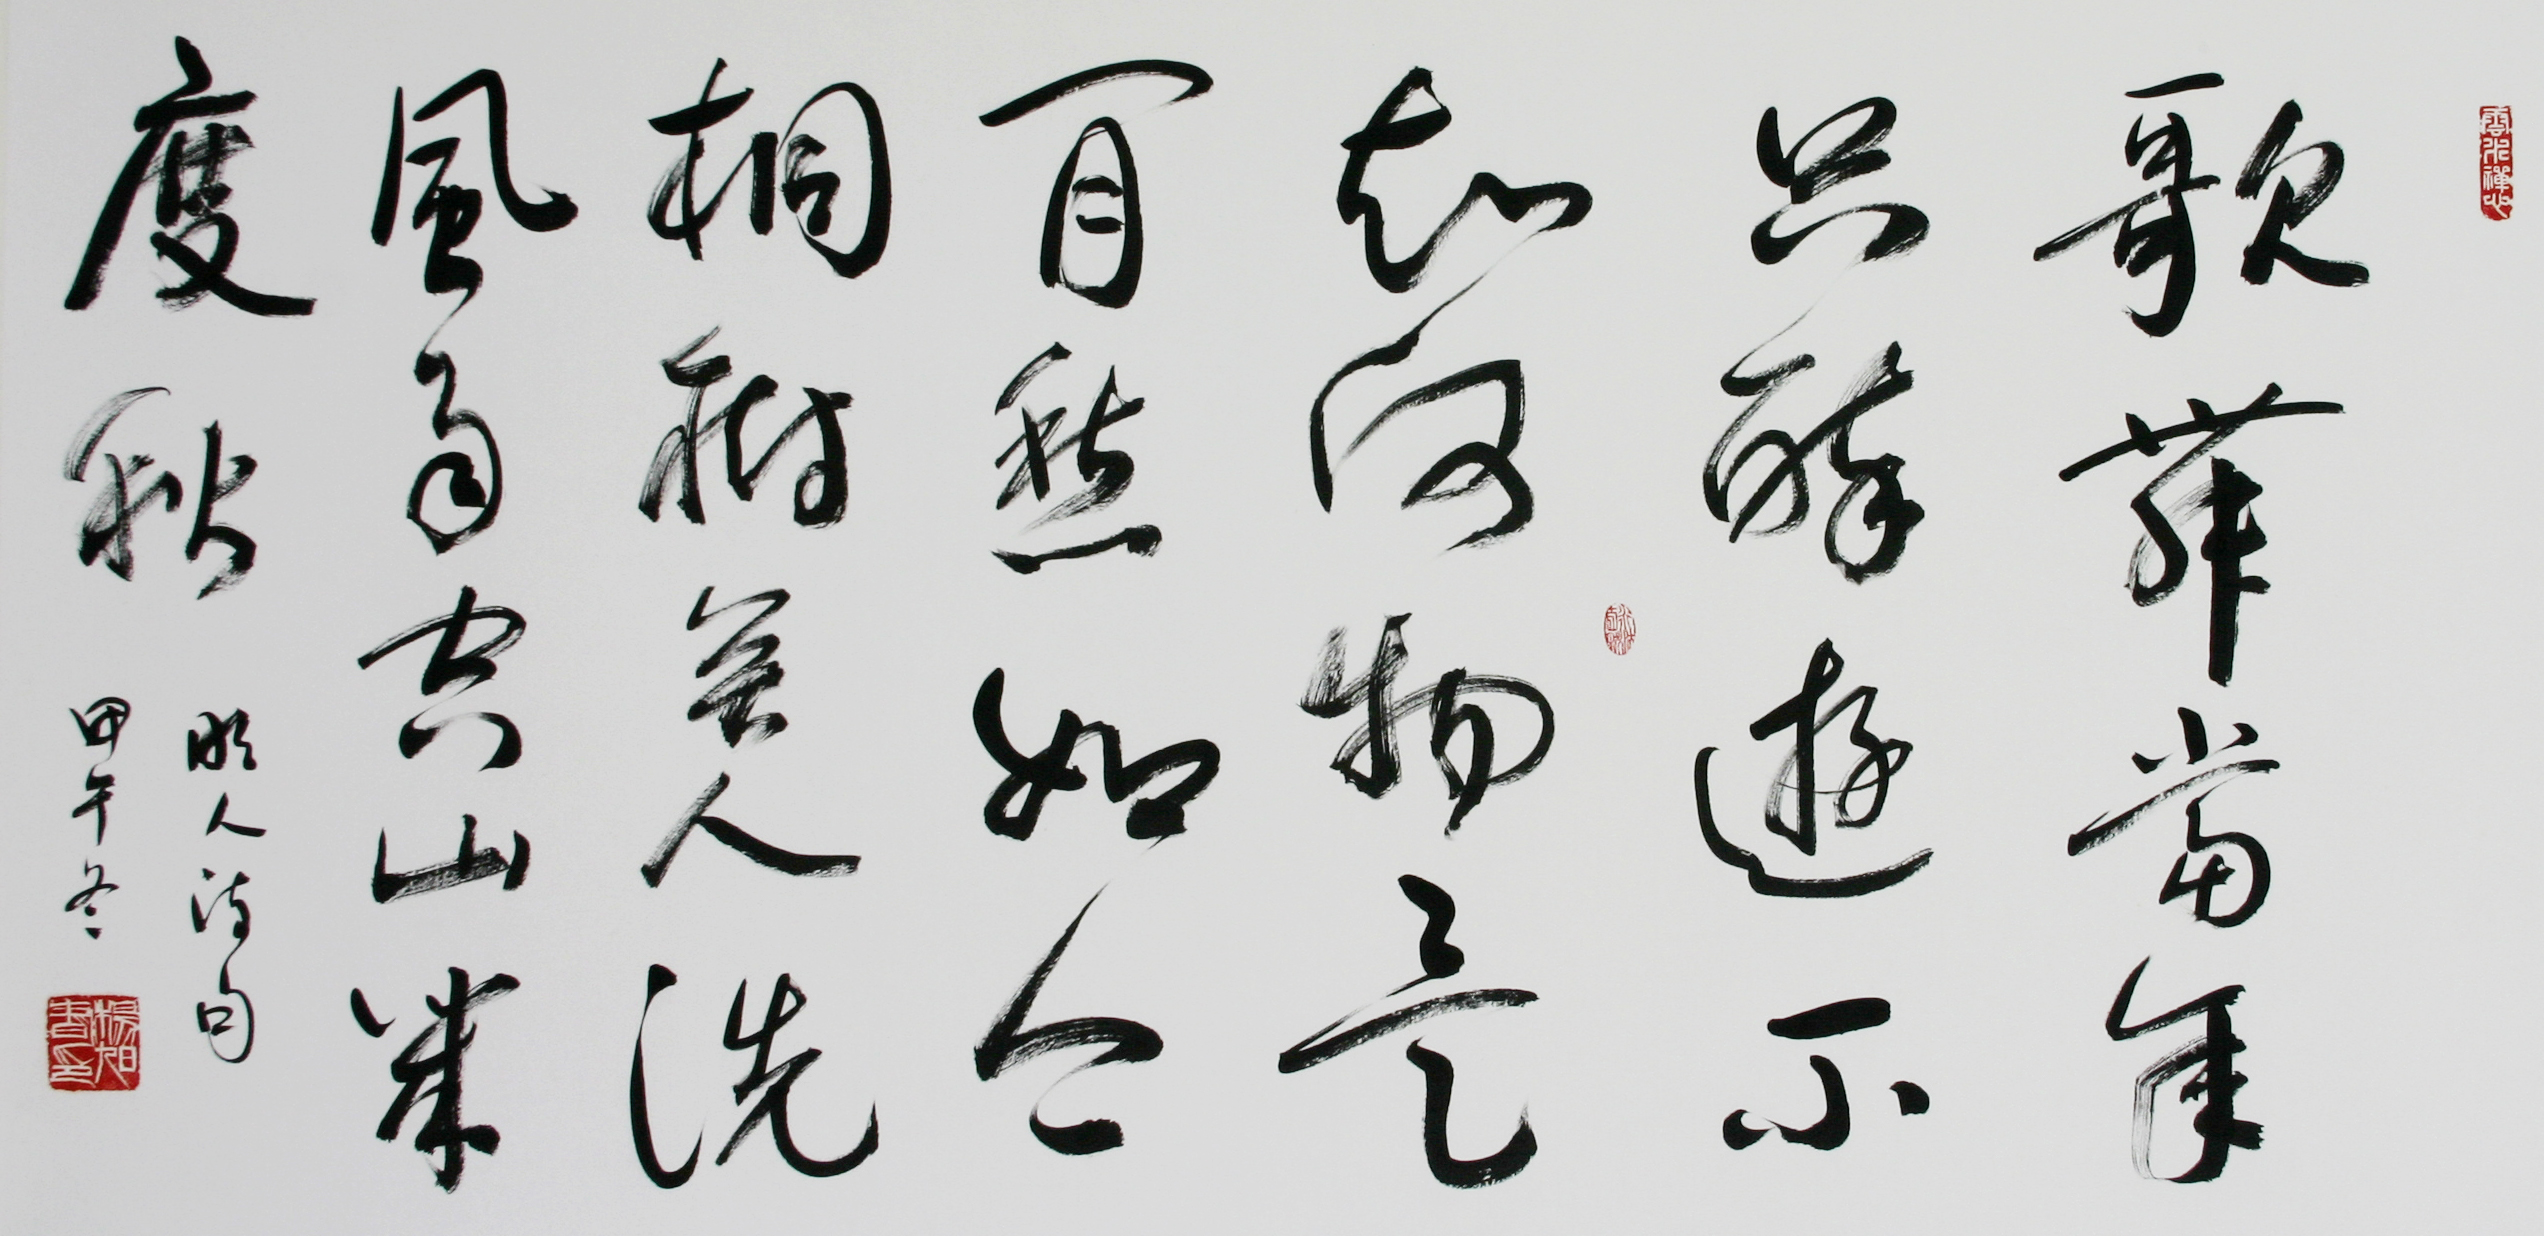 雲水禪心
歌舞當年
只醉遊不
知何物是
閒愁如今
桐樹無人洗
風雨空山幾
度秋
明人詩句
甲午冬